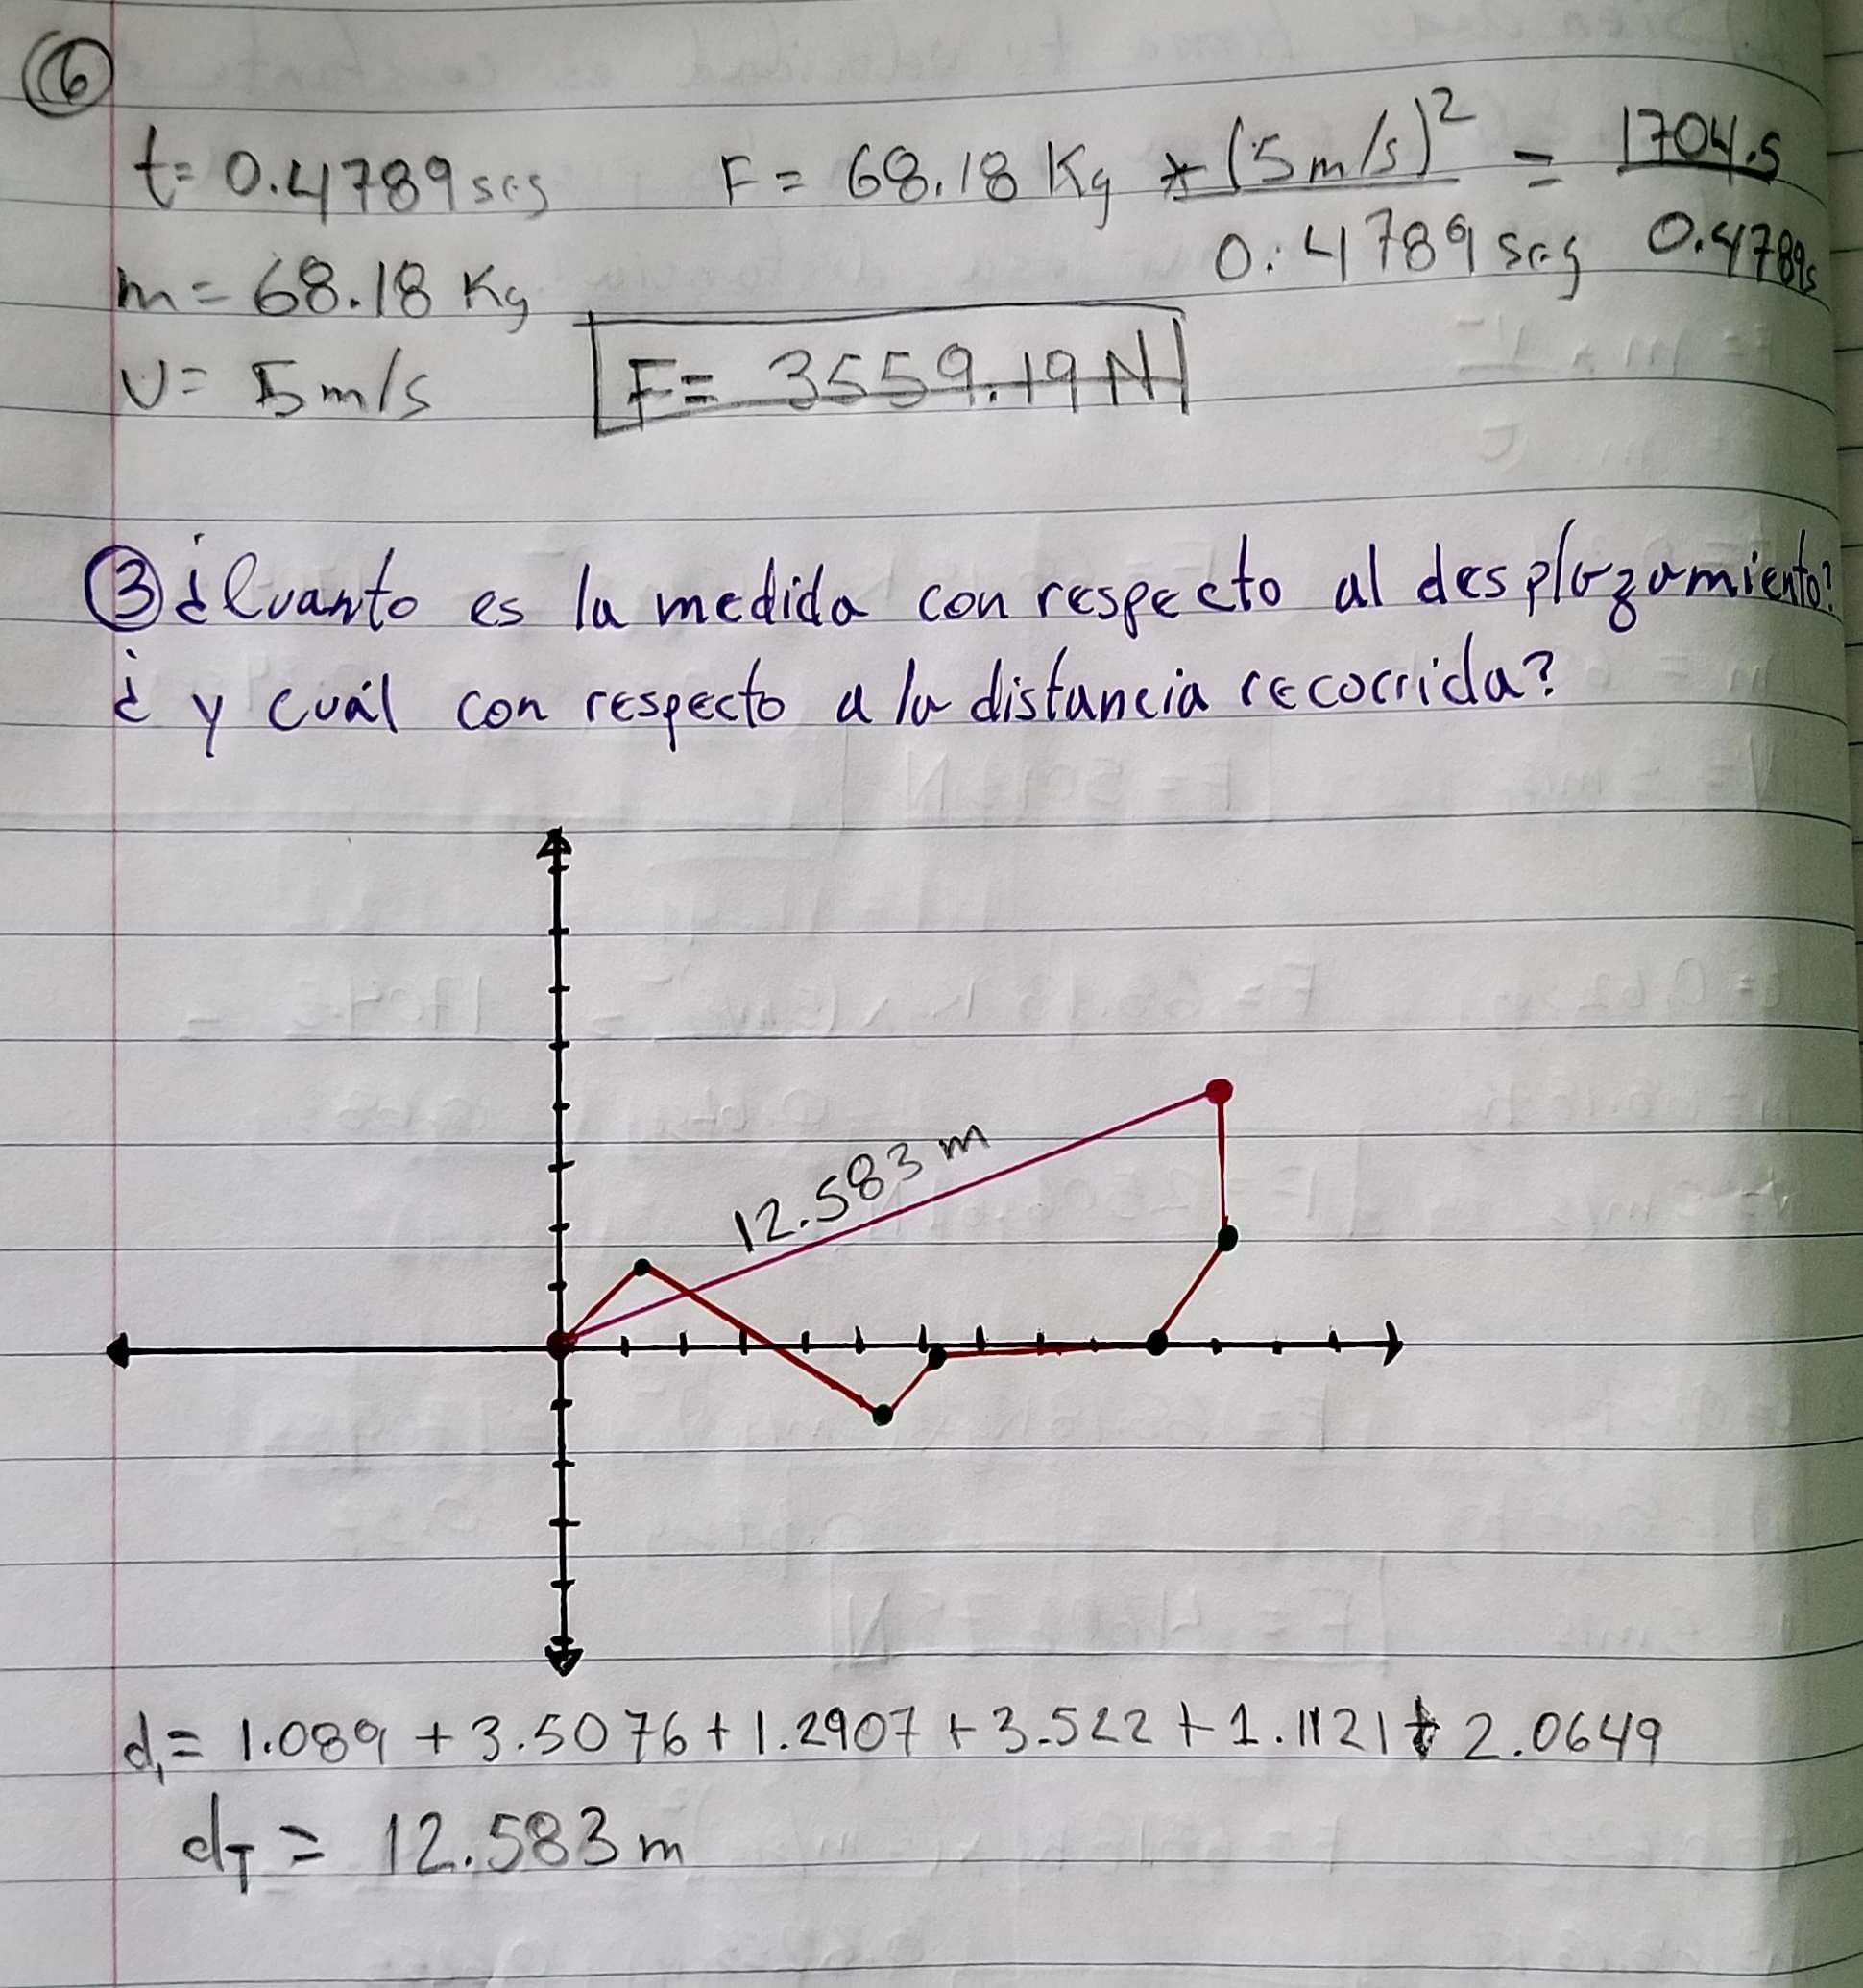 6
t= 0.4789 seg F= 68.18 Kg * (5m/s)² = 1704.5
0.4789 seg 0.4789s
m= 68.18 Kg
v= 5m/s F= 3559.19 N
3 ¿Cuanto es la medida con respecto al desplazamiento?
¿ y cuál con respecto a la distancia recorrida?
12.583 m
d₁= 1.089 + 3.5076 + 1.2907 + 3.522 + 1.1121 + 2.0649
dT = 12.583 m